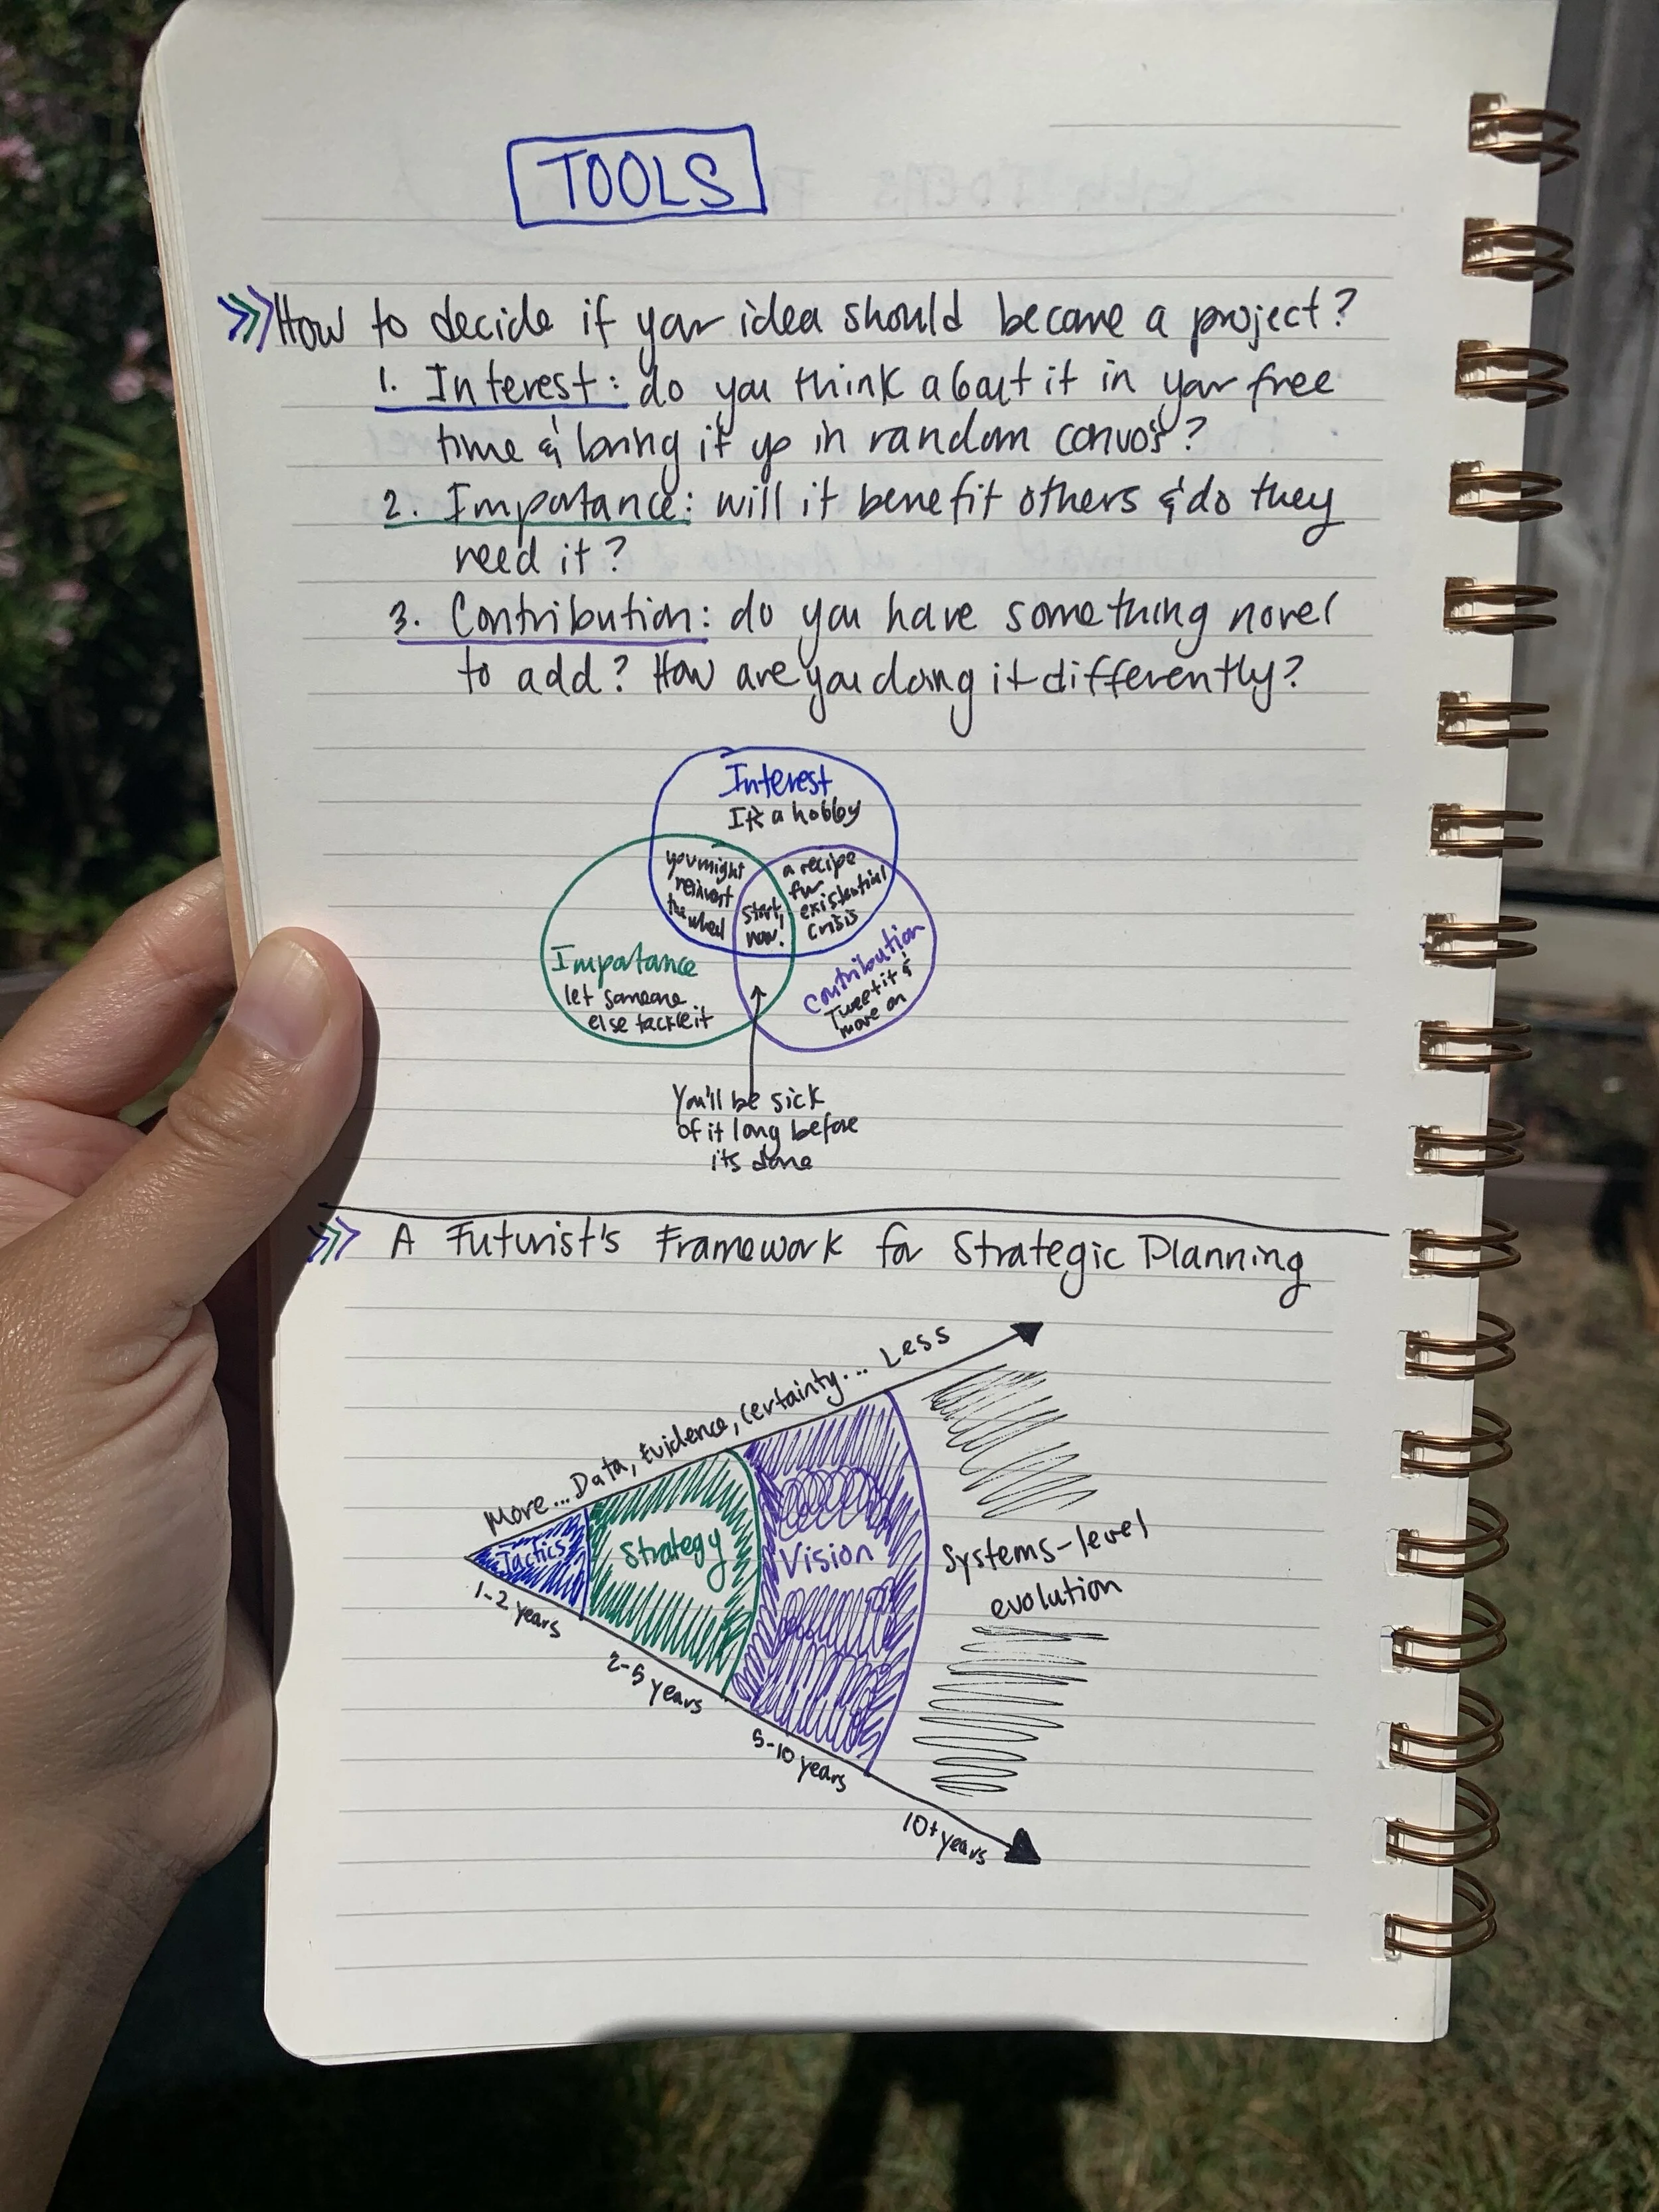 TOOLS
How to decide if your idea should become a project?
1. Interest: do you think about it in your free
time & bring it up in random convos?
2. Importance: will it benefit others & do they
need it?
3. Contribution: do you have something novel
to add? How are you doing it differently?
Interest
It's a hobby
you might
reinvent
the wheel
a recipe
for
existential
crisis
start
now!
Importance
let someone
else tackle it
Contribution
Tweet it &
move on
You'll be sick
of it long before
its done
A Futurist's Framework for Strategic Planning
More... Data, Evidence, certainty... Less
Tactics
Strategy
Vision
Systems-level
evolution
1-2 years
2-5 years
5-10 years
10+ years